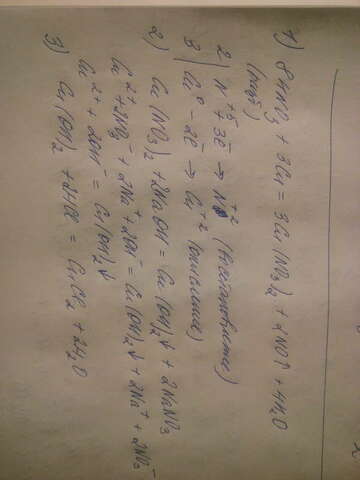 1) 8HNO3 + 3Cu = 3Cu(NO3)2 + 2NO↑ + 4H2O
(разб)
2 | N+5 + 3ē → N+2 (восстановление)
3 | Cu0 - 2ē → Cu+2 (окисление)
2) Cu(NO3)2 + 2NaOH = Cu(OH)2↓ + 2NaNO3
Cu2+ + 2NO3- + 2Na+ + 2OH- = Cu(OH)2↓ + 2Na+ + 2NO3-
Cu2+ + 2OH- = Cu(OH)2↓
3) Cu(OH)2 + 2HCl = CuCl2 + 2H2O